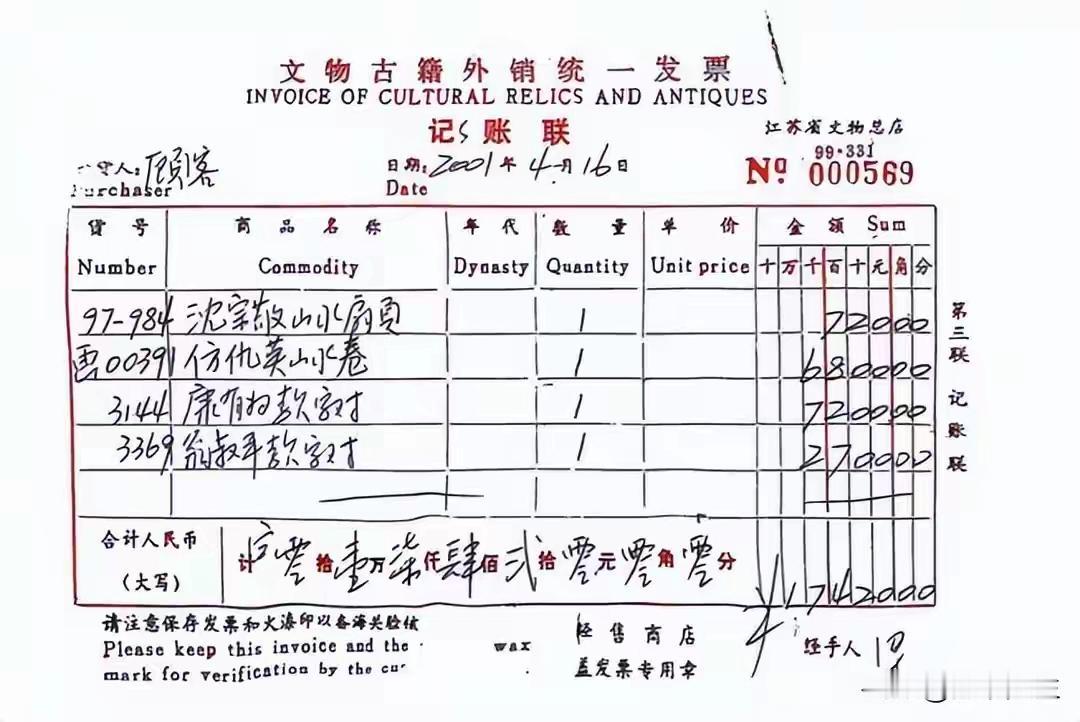 文物古籍外销统一发票
INVOICE OF CULTURAL RELICS AND ANTIQUES
记账联
江苏省文物总店
99·331
人: 顾客 日期: 2001年4月16日 Nº 000569
Purchaser Date
货号 商品名称 年代 数量 单价 金额 Sum
Number Commodity Dynasty Quantity Unit price 十万千百十元角分
97-984 沈宗敬山水扇页 1 72000
雷00391 仿仇英山水卷 1 680000
3144 康有为款字对 1 720000
3369 翁叔平款字对 1 270000
合计人民币 计 零拾壹万柒仟肆佰贰拾零元零角零分 ¥1742000
(大写)
第三联 记账联
请注意保存发票和火漆印以备海关验核
Please keep this invoice and the wax
mark for verification by the cus
经售商店
盖发票专用章
经手人